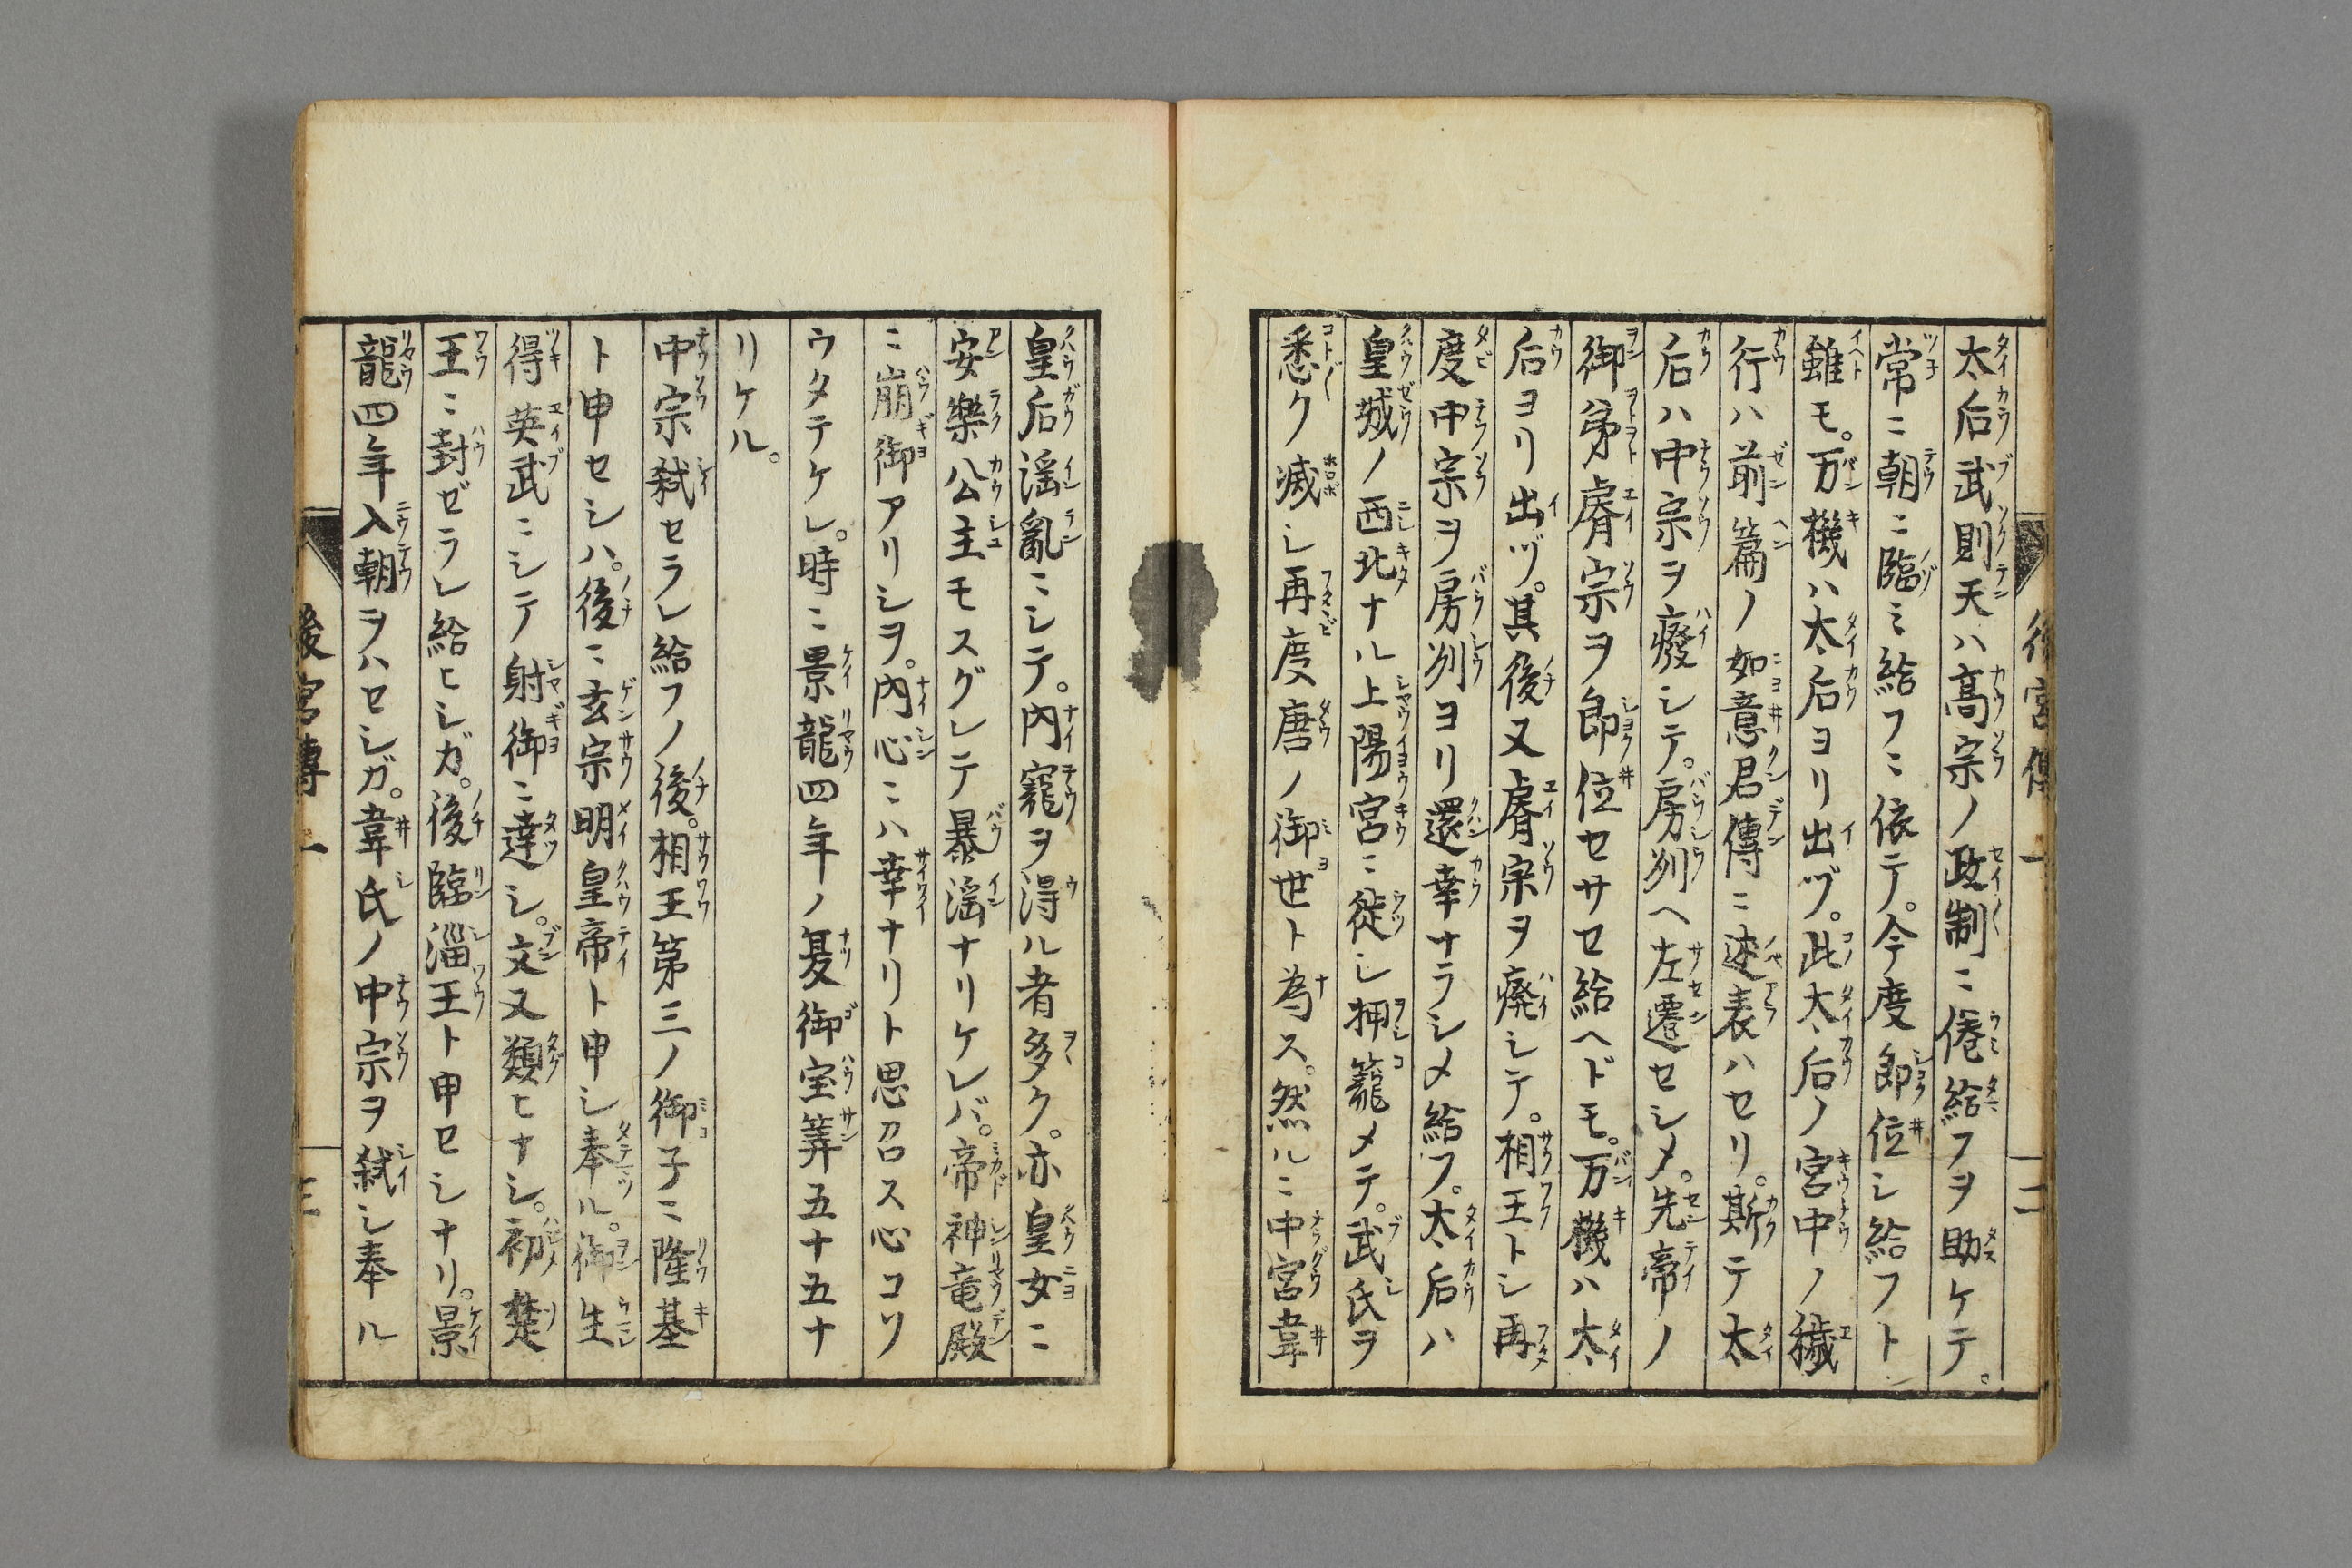 太后武則天ハ髙宗ノ政制ニ倦給フヲ助ケテ。
常ニ朝ニ臨ミ給フニ依テ。今度即位シ給フト
雖モ。万機ハ太后ヨリ出ヅ。此太后ノ宮中ノ穢
行ハ前篇ノ如意君傳ニ述表ハセリ。斯テ太
后ハ中宗ヲ癈シテ。房刕ヘ左遷セシメ。先帝ノ
御弟睿宗ヲ即位セサセ給ヘドモ。万機ハ太
后ヨリ出ヅ。其後又睿宗ヲ癈シテ。相王トシ再
度中宗ヲ房刕ヨリ還幸ナラシメ給フ。太后ハ
皇城ノ西北ナル上陽宮ニ徙シ押籠メテ。武氏ヲ
悉ク滅シ再度唐ノ御世ト為ス。然ルニ中宮韋
皇后淫亂ニシテ。内寵ヲ得ル者多ク。亦皇女ニ
安樂公主モスグレテ暴淫ナリケレバ。帝神竜殿
ニ崩御アリシヲ。内心ニハ幸ナリト思召ス心コソ
ウタテケレ。時ニ景龍四年ノ夏御宝筭五十五ナ
リケル。
中宗弑セラレ給フノ後。相王第三ノ御子ニ隆基
ト申セシハ。後ニ玄宗明皇帝ト申シ奉ル。御生
得英武ニシテ射御ニ達シ。文又類ヒナシ。初楚
王ニ封ゼラレ給ヒシガ。後臨淄王ト申セシナリ。景
龍四年入朝ヲハセシガ。韋氏ノ中宗ヲ弑シ奉ル
後宮傳 二
三